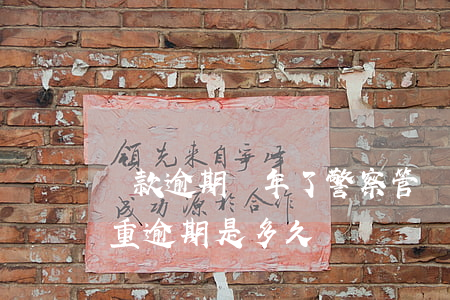 领先来自争峰
款逾期 年了警察管
成功源于合作
重逾期是多久